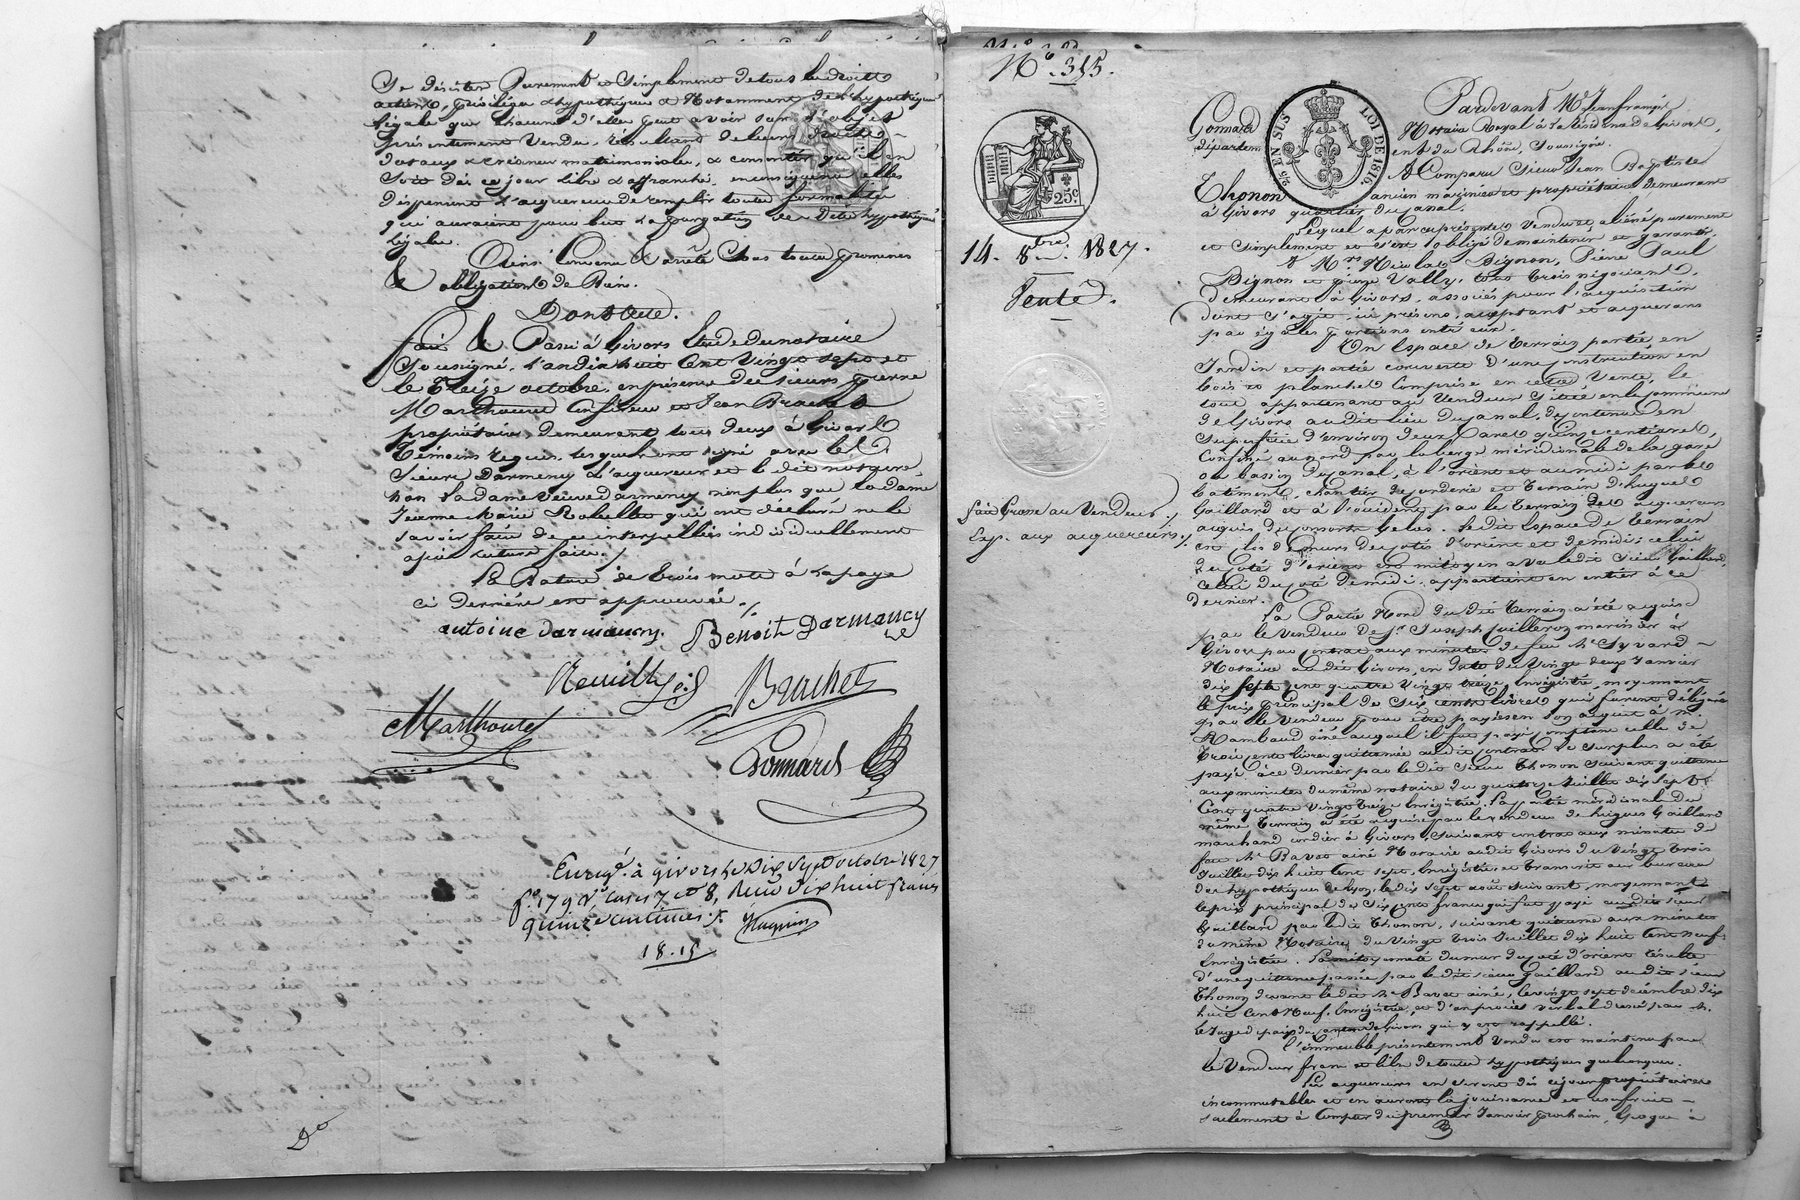 Se désister Purement et Simplement de tous les droits
actions, privilèges & hypothèques & Notamment de l'hypothèque
légale que chacune d'elles peut avoir sur l'objet
présentement Vendu, résultant de leurs droits
dotaux & créances matrimoniales, & consentir qu'il en
Soit dès ce jour libre & affranchi, en conséquence elles
dispensent l'acquereur de remplir toutes formalités
qui auraient pour but la purgation de dite hypothèque
légale.
Ainsi Convenu & arrêté Sous toutes promesses
& obligations de Biens.
Dont Acte.
fait & Passé à Givors Etude du notaire
Soussigné, l'an dix huit Cent Vingt sept et
le Treize octobre, en présence des sieurs pierre
Marthouret Confiseur et Jean Brachet
propriétaire, demeurant tous deux à Givors
témoins requis, lesquels ont signé avec les
Sieurs Darmency & l'acquereur et le dit notaire
non la dame Veuve Darmency non plus que la dame
Jeanne Marie Robellet qui ont déclaré ne le
savoir faire de ce interpellées individuellement
après lecture faite ./.
La Rature de trois mots à la page
ci derrière est approuvée ./.
antoine darmancy. Benoit Darmancy
Brachet
Marthouret
Gonnard
Enregé. à givors le Dix Sept octobre 1827
fo. 179 Vo. cases 7 et 8, Reçu Dix huit francs
quinze centimes ./.
18.15
No. 315.
25 EN SUS
LOI DE 1816
25c
14. 8bre. 1827.
Vente.
fait Grosse au Vendeur ./.
Exp. aux acquereurs ./.
Pardevant Me. Jean françois
Gonnard Notaire Royal à la Résidence de Givors,
départem ent du Rhône, Soussigné.
A Comparu Sieur Jean Baptiste
Thonon ancien marinier et propriétaire demeurant
à Givors quartier du Canal.
Lequel a par ces présentes Vendu et aliéné purement
et simplement et s'est obligé de maintenir et garantir,
à Mrs. Nicolas Bignon, Pierre Paul
Bignon et pierre Vally, tous trois négociants,
demeurant à Givors, associés pour l'acquisition
dont s'agit, ici présens, acceptant et acquerans
par égales portions entr'eux.
Un Espace de Terrain partie en
Jardin et partie couverte d'une Construction en
bois et planches Comprise en cette Vente, le
tout appartenant au Vendeur situé en la commune
de Givors au dit lieu du Canal, de contenue en
superficie d'environ deux Cares quinze centiares,
Confiné au nord par la berge méridionale de la gare
ou bassin du Canal, à l'orient et au midi par les
batiments, chantier de corderie et Terrain d'hugues
Gaillard et à l'occident par le Terrain des acquereurs
acquis de Consorts Gelas. Le dit Espace de terrain
est clos de murs du coté d'orient et de midi; celui
du coté d'orient est mitoyen avec le dit sieur Gaillard,
celui du coté de midi appartient en entier à ce
dernier.
La Partie Nord du dit Terrain a été acquise
par le vendeur de Sr. Joseph Juilleron marinier à
Givors par contrat aux minutes de feu Me. Syvard
Notaire au dit Givors, en date du Vingt deux Janvier
dix sept cent quatre Vingt treize Enregistré, moyennant
le prix principal de Six cents livres qui furent déléguées
par le Vendeur pour être payées en son acquit à M.
Rambaud ainé auquel il fut payé comptant celle de
Trois cents livres quittancée au dit contrat. Le Surplus a été
payé à ce dernier par le dit sieur Thonon suivant quittance
aux minutes du même notaire du quatorze Juillet dix sept
Cent quatre Vingt treize Enregistrée. La partie méridionale du
même terrain a été acquise par le vendeur de hugues Gaillard
marchand cordier à Givors, suivant contrat aux minutes de
feu Me. Bavet ainé Notaire au dit Givors du Vingt trois
Juillet dix huit Cent sept, Enregistré et transcrit au bureau
des hypothèques de Lyon le dix sept août suivant, moyennant
le prix principal de Six cents francs qui fut payé au dit sieur
Gaillard par le dit Thonon, suivant quittance aux minutes
du même Notaire, du Vingt trois Juillet dix huit Cent neuf
Enregistrée. La mitoyenneté du mur du coté d'orient résulte
d'une quittance passée par le dit sieur Gaillard au dit sieur
Thonon devant le dit Me. Bavet ainé, le vingt sept décembre dix
huit Cent Neuf, Enregistrée, et d'un procès verbal dressé par M.
le Juge de paix du canton de Givors qui y est rappellé.
L'immeuble présentement Vendu est maintenu par
le Vendeur franc et libre de toutes hypothèques quelconques.
Les acquereurs en seront dès ce jour propriétaires
incommutables et en auront la jouissance et usufruit
seulement à Compter du premier Janvier prochain, époque à